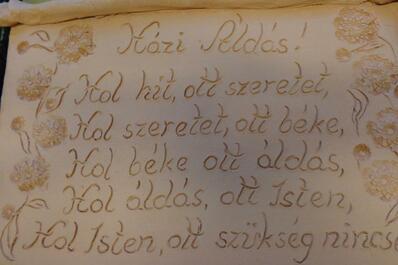 Házi Áldás!
Hol hit, ott szeretet,
Hol szeretet, ott béke,
Hol béke ott áldás,
Hol áldás, ott Isten,
Hol Isten, ott szükség nincs